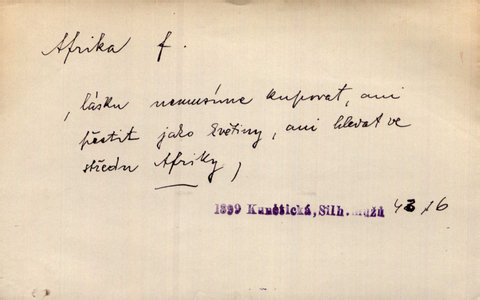 Afrika f.
, lásku nemusíme kupovat, ani
pěstit jako květiny, ani hledat ve
středu Afriky,
1899 Kunětická, Silh. mužů 43 76